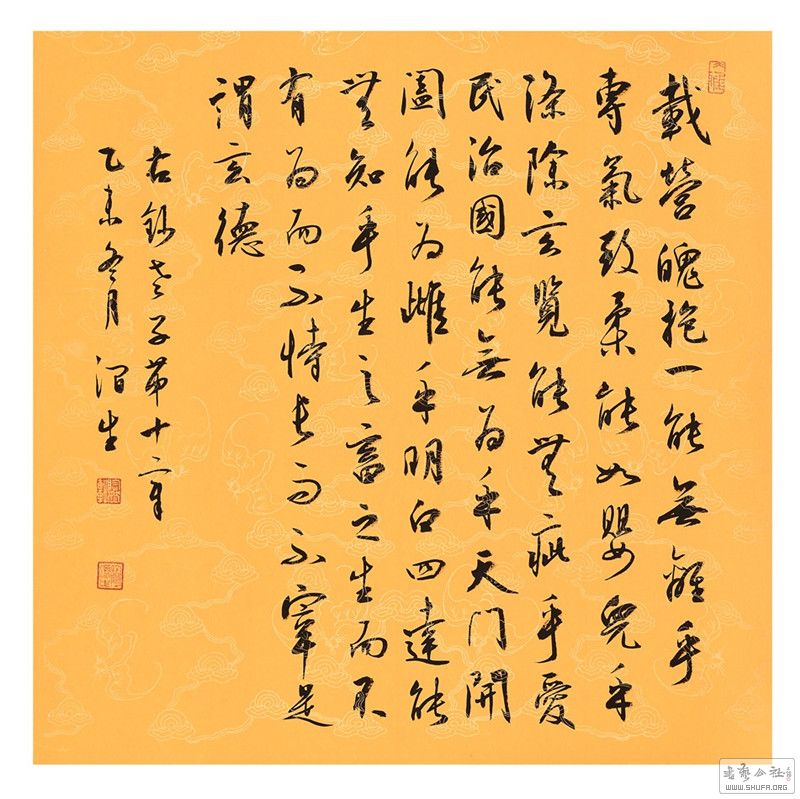 載營魄抱一能無離乎
專氣致柔能如嬰兒乎
滌除玄覽能無疵乎愛
民治國能無為乎天門開
闔能為雌乎明白四達能
無知乎生之畜之生而不
有為而不恃長而不宰是
謂玄德
右鈔老子第十章
乙未冬月 生
書藝公社
WWW.SHUFA.ORG